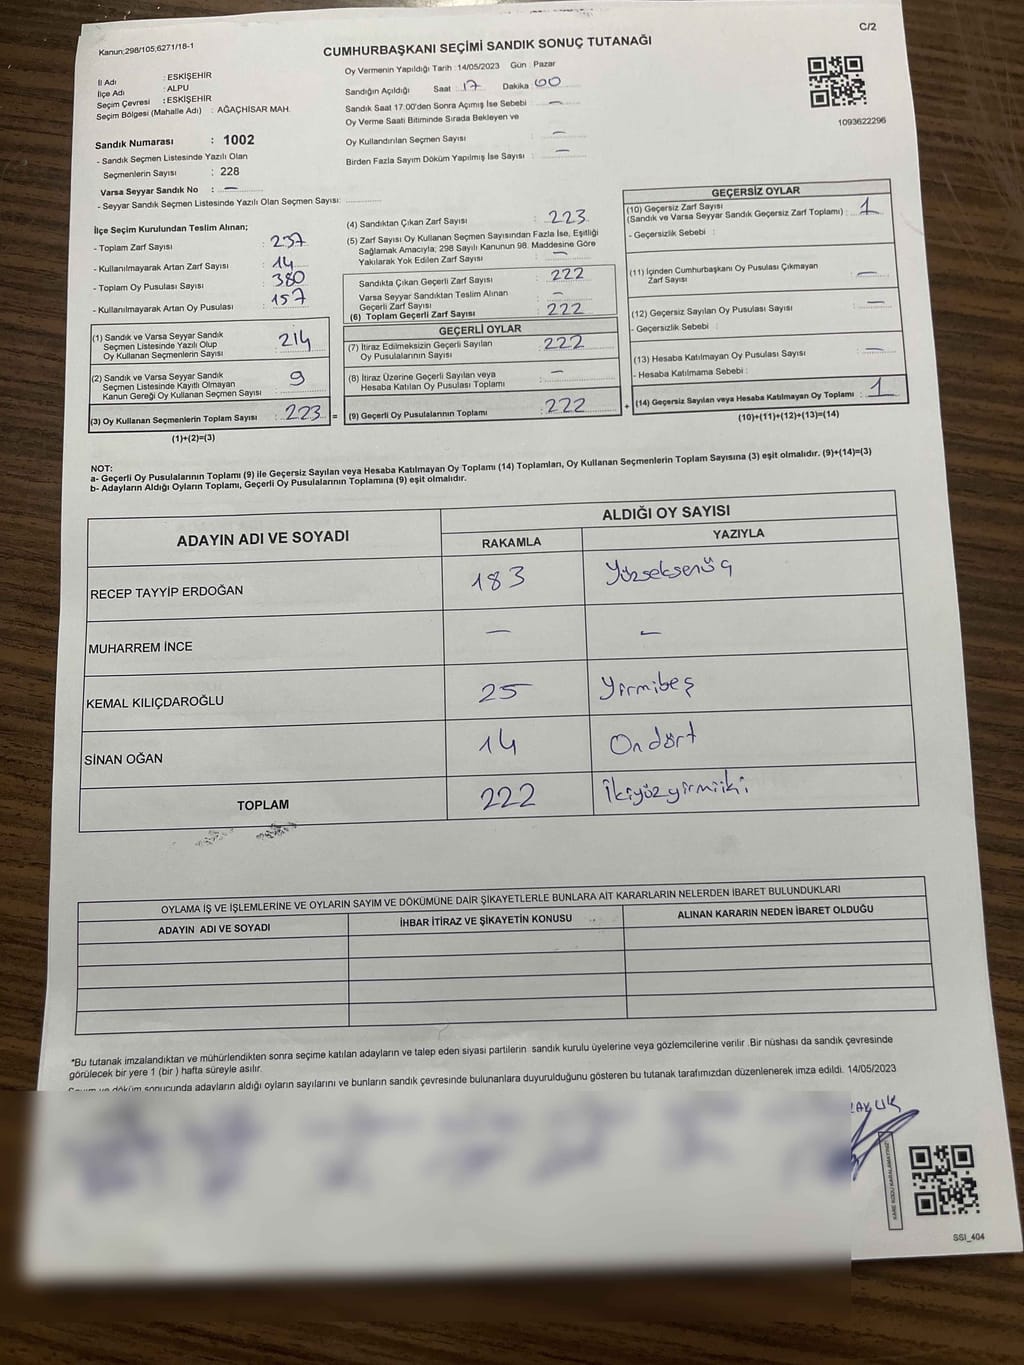 C/2
Kanun;298/105,6271/18-1
CUMHURBAŞKANI SEÇİMİ SANDIK SONUÇ TUTANAĞI
İl Adı : ESKİŞEHİR
İlçe Adı : ALPU
Seçim Çevresi : ESKİŞEHİR
Seçim Bölgesi (Mahalle Adı) : AĞAÇHİSAR MAH.
Sandık Numarası : 1002
- Sandık Seçmen Listesinde Yazılı Olan
Seçmenlerin Sayısı : 228
Varsa Seyyar Sandık No : —
- Seyyar Sandık Seçmen Listesinde Yazılı Olan Seçmen Sayısı:
Oy Vermenin Yapıldığı Tarih : 14/05/2023 Gün : Pazar
Sandığın Açıldığı Saat : 17 Dakika : 00
Sandık Saat 17:00'den Sonra Açımış İse Sebebi : —
Oy Verme Saati Bitiminde Sırada Bekleyen ve
Oy Kullandırılan Seçmen Sayısı : —
Birden Fazla Sayım Döküm Yapılmış İse Sayısı : —
1093622296
İlçe Seçim Kurulundan Teslim Alınan;
- Toplam Zarf Sayısı : 237
- Kullanılmayarak Artan Zarf Sayısı : 14
- Toplam Oy Pusulası Sayısı : 380
- Kullanılmayarak Artan Oy Pusulası : 157
(1) Sandık ve Varsa Seyyar Sandık
Seçmen Listesinde Yazılı Olup
Oy Kullanan Seçmenlerin Sayısı : 214
(2) Sandık ve Varsa Seyyar Sandık
Seçmen Listesinde Kayıtlı Olmayan
Kanun Gereği Oy Kullanan Seçmen Sayısı : 9
(3) Oy Kullanan Seçmenlerin Toplam Sayısı : 223 =
(1)+(2)=(3)
(4) Sandıktan Çıkan Zarf Sayısı : 223
(5) Zarf Sayısı Oy Kullanan Seçmen Sayısından Fazla İse, Eşitliği
Sağlamak Amacıyla; 298 Sayılı Kanunun 98. Maddesine Göre
Yakılarak Yok Edilen Zarf Sayısı : —
Sandıkta Çıkan Geçerli Zarf Sayısı : 222
Varsa Seyyar Sandıktan Teslim Alınan
Geçerli Zarf Sayısı : —
(6) Toplam Geçerli Zarf Sayısı : 222
GEÇERLİ OYLAR
(7) İtiraz Edilmeksizin Geçerli Sayılan
Oy Pusulalarının Sayısı : 222
(8) İtiraz Üzerine Geçerli Sayılan veya
Hesaba Katılan Oy Pusulası Toplamı : —
(9) Geçerli Oy Pusulalarının Toplamı : 222 +
GEÇERSİZ OYLAR
(10) Geçersiz Zarf Sayısı
(Sandık ve Varsa Seyyar Sandık Geçersiz Zarf Toplamı) : 1
- Geçersizlik Sebebi :
(11) İçinden Cumhurbaşkanı Oy Pusulası Çıkmayan
Zarf Sayısı : —
(12) Geçersiz Sayılan Oy Pusulası Sayısı : —
- Geçersizlik Sebebi :
(13) Hesaba Katılmayan Oy Pusulası Sayısı : —
- Hesaba Katılmama Sebebi :
(14) Geçersiz Sayılan veya Hesaba Katılmayan Oy Toplamı : 1
(10)+(11)+(12)+(13)=(14)
NOT:
a- Geçerli Oy Pusulalarının Toplamı (9) ile Geçersiz Sayılan veya Hesaba Katılmayan Oy Toplamı (14) Toplamları, Oy Kullanan Seçmenlerin Toplam Sayısına (3) eşit olmalıdır. (9)+(14)=(3)
b- Adayların Aldığı Oyların Toplamı, Geçerli Oy Pusulalarının Toplamına (9) eşit olmalıdır.
ADAYIN ADI VE SOYADI ALDIĞI OY SAYISI
RAKAMLA YAZIYLA
RECEP TAYYİP ERDOĞAN 183 Yüzseksenüç
MUHARREM İNCE — —
KEMAL KILIÇDAROĞLU 25 Yirmibeş
SİNAN OĞAN 14 Ondört
TOPLAM 222 İkiyüzyirmiiki
OYLAMA İŞ VE İŞLEMLERİNE VE OYLARIN SAYIM VE DÖKÜMÜNE DAİR ŞİKAYETLERLE BUNLARA AİT KARARLARIN NELERDEN İBARET BULUNDUKLARI
ADAYIN ADI VE SOYADI İHBAR İTİRAZ VE ŞİKAYETİN KONUSU ALINAN KARARIN NEDEN İBARET OLDUĞU
*Bu tutanak imzalandıktan ve mühürlendikten sonra seçime katılan adayların ve talep eden siyasi partilerin sandık kurulu üyelerine veya gözlemcilerine verilir .Bir nüshası da sandık çevresinde
görülecek bir yere 1 (bir ) hafta süreyle asılır.
Sayım ve döküm sonucunda adayların aldığı oyların sayılarını ve bunların sandık çevresinde bulunanlara duyurulduğunu gösteren bu tutanak tarafımızdan düzenlenerek imza edildi. 14/05/2023
KARE KODU KARALAMAYINIZ
SSI_404